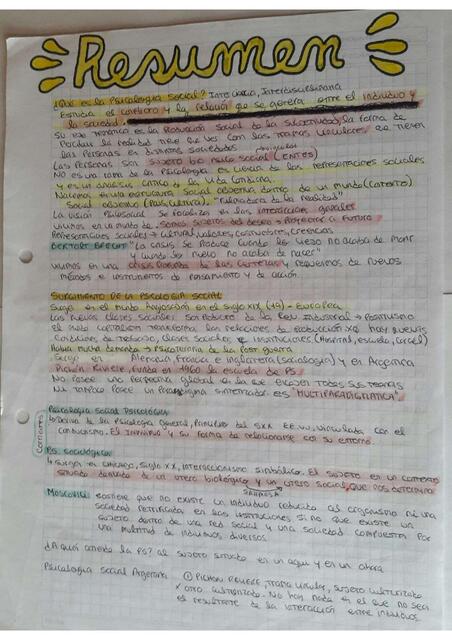 Resumen
¿Qué es la Psicología Social? Interciencia, Interdisciplinaria
Estudia el conflicto y la relación que se genera entre el individuo y
la sociedad.
Su eje temático es la Producción Social de la Subjetividad, la forma de
Percibir la realidad tiene que ver con las tramas vinculares que tienen
las Personas en distintas sociedades
Las Personas son sujeto bio psico social (ENTES)
NO es una rama de la Psicología es ciencia de las representaciones sociales
y es un análisis crítico de la vida cotidiana.
Nacemos en una estructura social objetiva dentro de un mundo (contexto)
Social objetivo (País, cultura). "Fundadora de la realidad"
La visión Psicosocial se focaliza en las interacciones grupales
vivimos en un mundo de. Somos sujetos del deseo → Proyecto a futuro
Representaciones sociales → cultural, valores, costumbres, creencias
BERTOLT BRECHT "La crisis se produce cuando lo viejo no acaba de morir
y cuando lo nuevo no acaba de nacer"
vivimos en una crisis profunda de las certezas y requerimos de nuevos
métodos e instrumentos de pensamiento y de acción.
SURGIMIENTO DE LA PSICOLOGIA SOCIAL
Surge en el mundo Anglosajón en el siglo XIX (19) - Europea
Las nuevas clases sociales son producto de la Rev industrial → Positivismo
el modo capitalista transforma las relaciones de producción xq hay nuevas
condiciones de trabajo, clases sociales, e instituciones (Hospital, escuela, cárcel)
Había mucha demanda → Psicoterapia de la post guerra
Surgió en Alemania, Francia e Inglaterra (sociología) y en Argentina
Pichón Riviere, funda en 1960 la escuela de PS.
No posee una perspectiva global en la que encajen todas sus teorías
Ni tampoco posee un Paradigma sintetizador es "MULTIPARADIGMÁTICA"
Corrientes
Psicología Social Psicológica
↳ Deriva de la Psicología general, Principios del SXX EE.UU, vinculada con el
conductismo. El INDIVIDUO y su forma de relacionarse con su entorno.
P.S. Sociológica
↳ Surge en CHICAGO, siglo XX, interaccionismo simbólico. El SUJETO en un contexto
situado derivado de un útero biológico y un útero social, que nos determina
MOSCOVICI sostiene que no existe un individuo reducido al organismo ni una
sociedad petrificada en las instituciones si no que existe un
sujeto dentro de una red social y una sociedad compuesta por
una multitud de individuos diversos
¿A quién atiende la PS? al sujeto situado en un aquí y en un ahora
Psicología Social Argentina ① PICHON RIVIERE, trama vincular, sujeto culturizado
x otro culturizado. No hay nada en él que no sea
el resultante de la interacción entre individuos